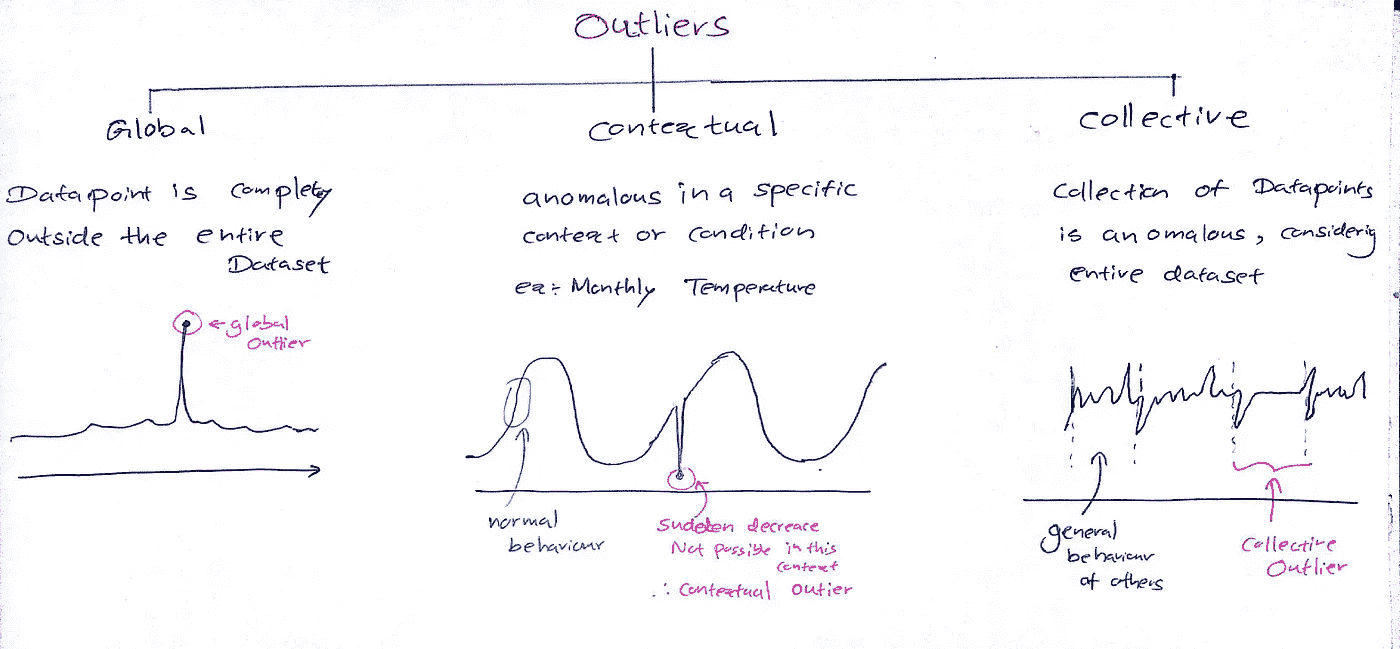 Outliers
Global
Datapoint is complety
outside the entire
Dataset
←global
outlier
Contextual
anomalous in a specific
context or condition
ex:- Monthly Temperature
normal
behaviour
Sudden decrease
Not possible in this
context
∴ Contextual outier
Collective
Collection of Datapoints
is anomalous, considerig
entire dataset
general
behaviour
of others
Collective
Outlier